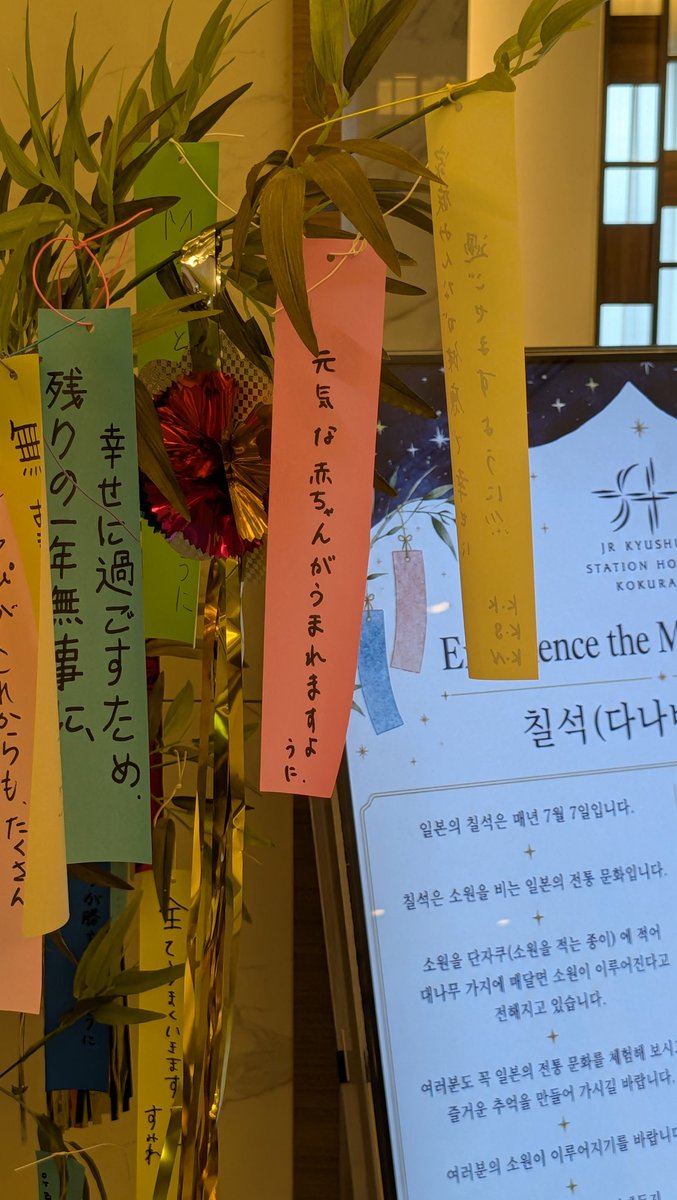 幸せに過ごすため、
残りの一年無事に、
無
がこれからも、たくさん
元気な赤ちゃんがうまれますよ
うに.
過ごせますように!!!
家族みんなが健康で幸せに
K.K
K.S
K.N
と
うに
が勝
うに
全てうまくいきます
すみれ
JR KYUSHU
STATION HO
KOKURA
Experience the M
칠석(다나바
일본의 칠석은 매년 7월 7일입니다.
칠석은 소원을 비는 일본의 전통 문화입니다.
소원을 단자쿠(소원을 적는 종이) 에 적어
대나무 가지에 매달면 소원이 이루어진다고
전해지고 있습니다.
여러분도 꼭 일본의 전통 문화를 체험해 보시고
즐거운 추억을 만들어 가시길 바랍니다.
여러분의 소원이 이루어지기를 바랍니다